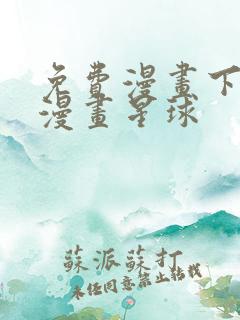 免費漫畫下
漫畫星球
蘇派蘇打
未經同意禁止轉載